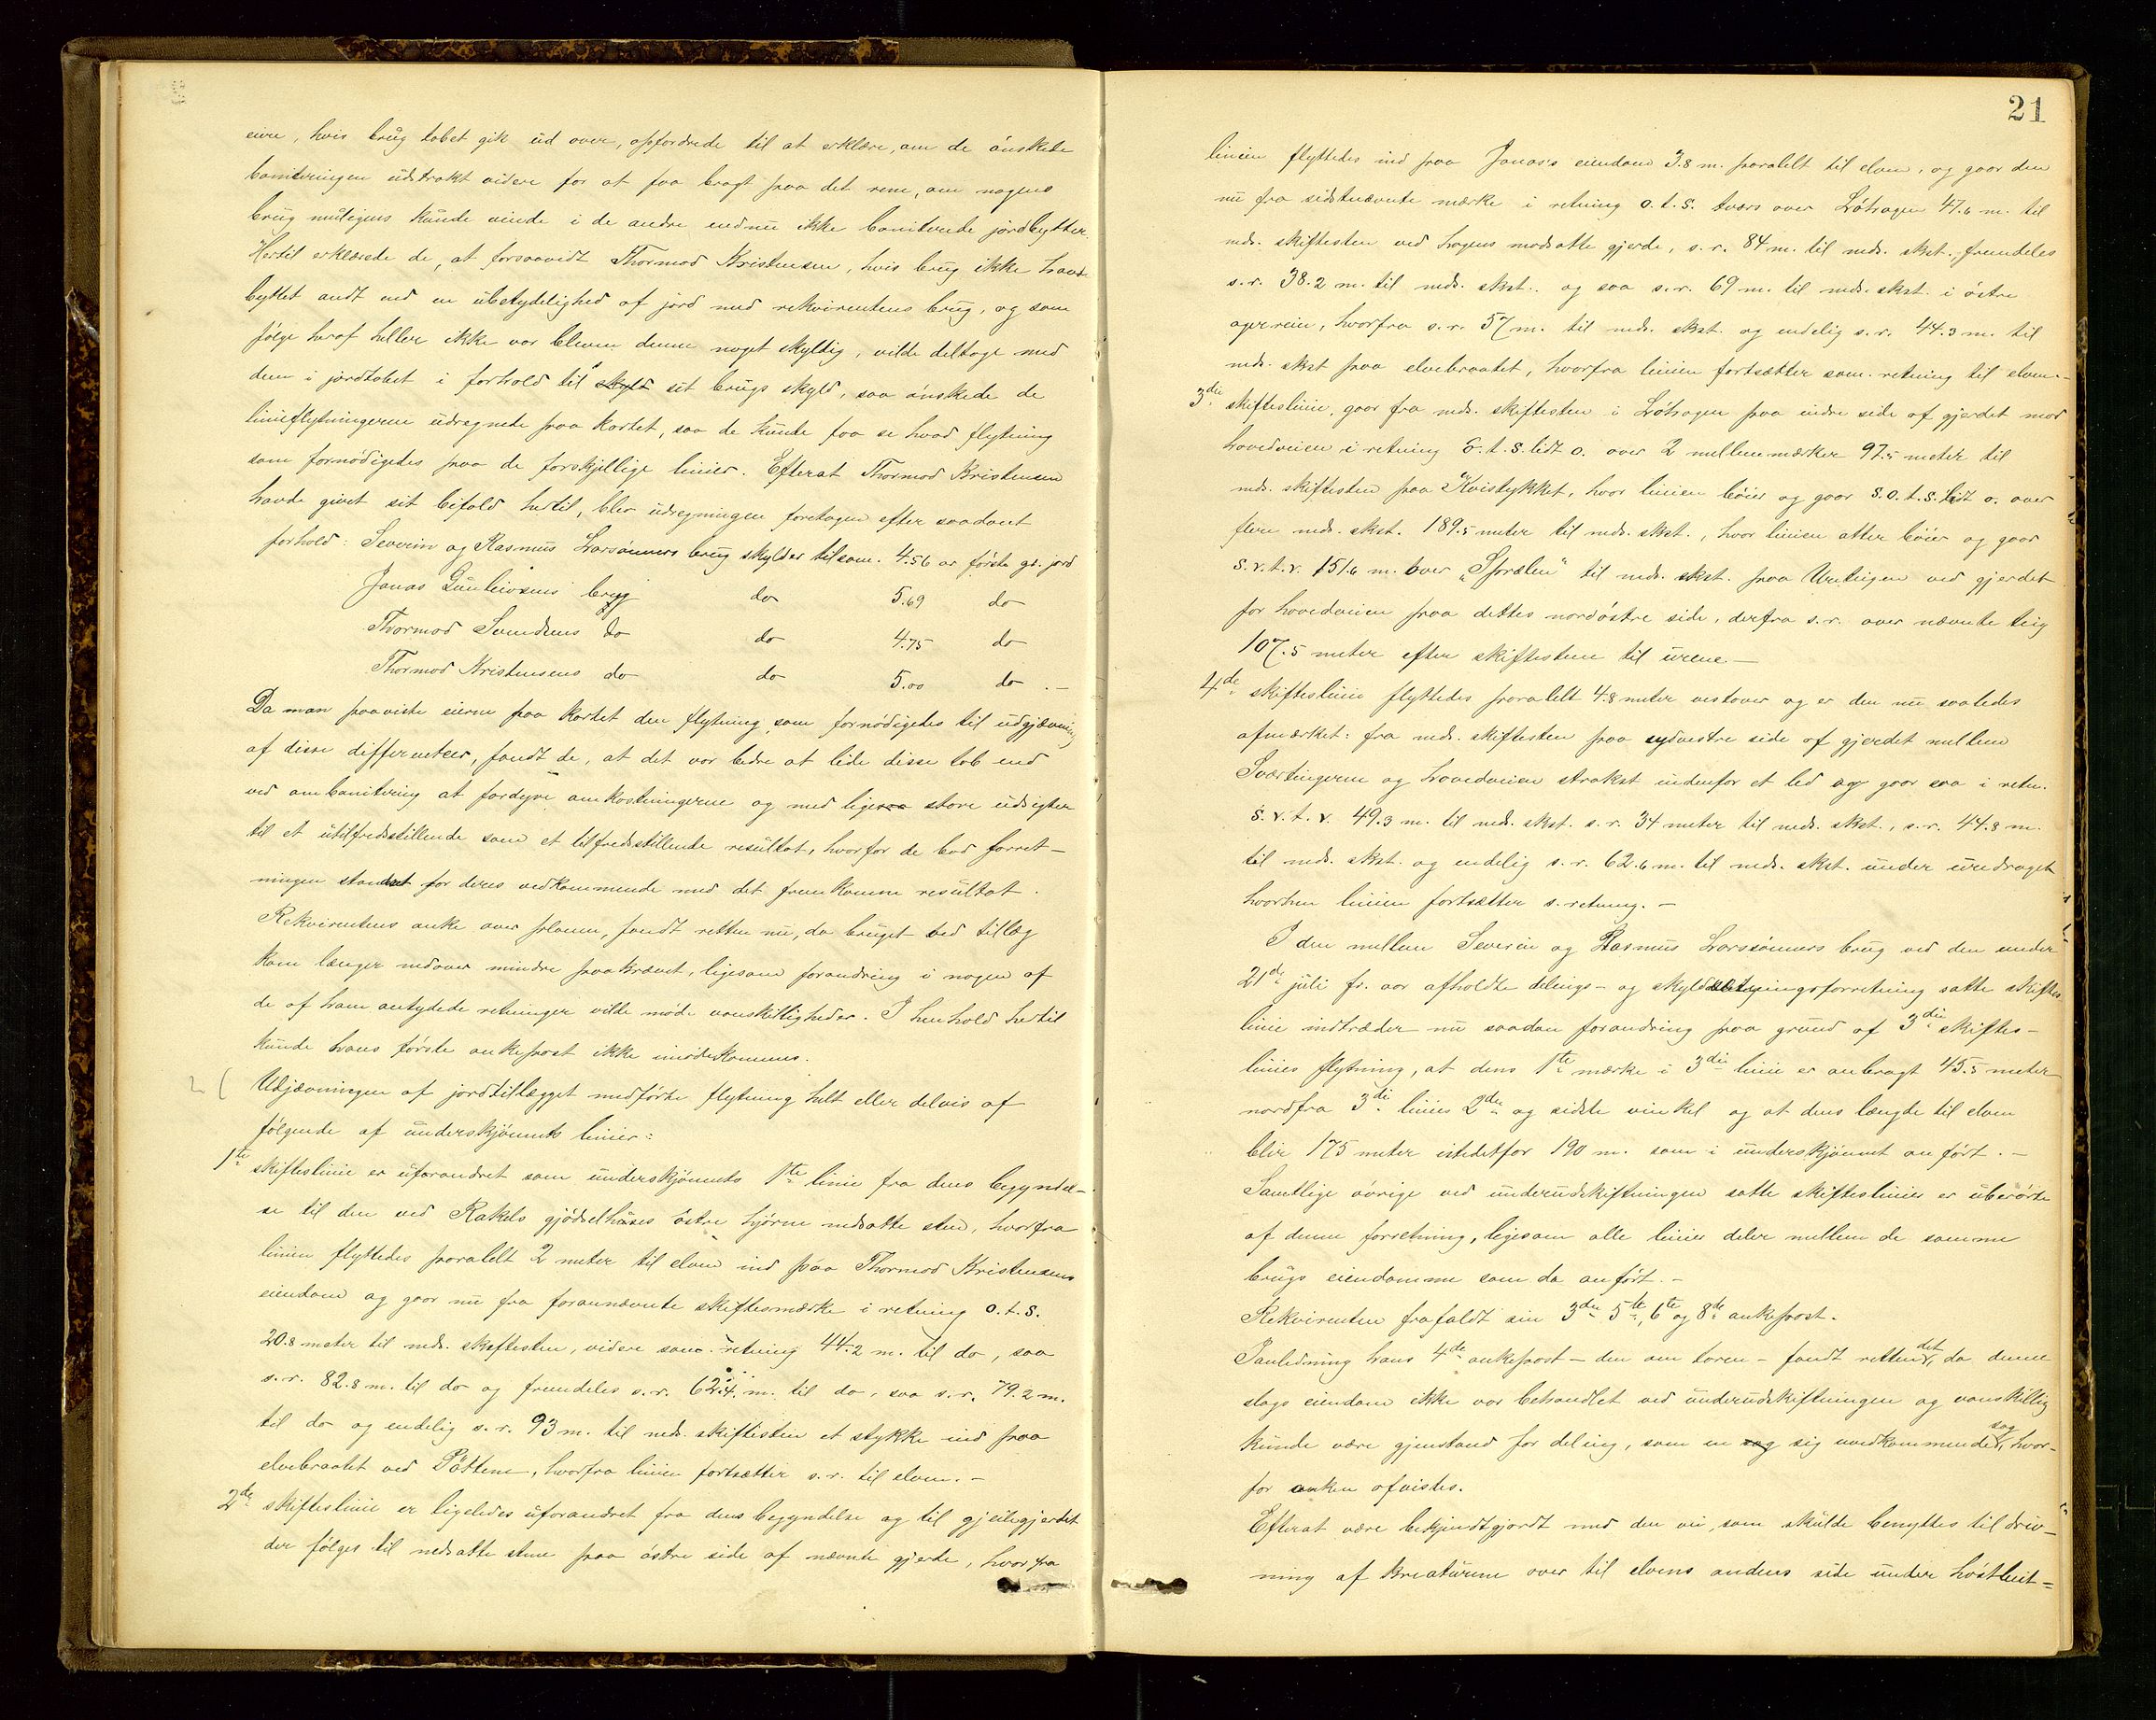 eiere, hvis brug tabet gik ud over, opfordrede til at erklære, om de ønskede
boniteringen udstrakt videre for at faa bragt paa det rene, om nogens
brug muligens kunde vinde i de andre endnu ikke boniterede jordbytter.
Hertil erklærede de, at forsaavidt Thormod Kristensen, hvis brug ikke havde
byttet andt end en ubetydelighed af jord med rekvirentens brug, og som
følge heraf heller ikke var bleven denne noget skyldig, vilde deltage med
dem i jordtabet i forhold til skyld sit brugs skyld, saa ønskede de
linieflytningerne udregnede paa kartet, saa de kunde faa se hvad flytning
som fornødigedes paa de forskjellige linier. Efterat Thormod Kristensen
havde givet sit bifald hertil, blev udregningen foretagen efter saadant
forhold: Severin og Rasmus Larsønners brug skylder tilsam. 4.56 ar første gr. jord
Jonas Gunleivsens brug do 5.69 do
Thormod Svendsens do do 4.75 do
Thormod Kristensens do do 5.00 do. —
Da man paaviste eierne paa kartet den flytning, som fornødigedes til udgjævning
af disse differentser, fandt de, at det var bedre at lide disse tab end
ved ombonitering at fordyre omkostningerne og med ligesaa store udsigter
til et utilfredsstillende som et tilfredsstillende resultat, hvorfor de bad forret-
ningen standset for deres vedkommende med det fremkomne resultat.
Rekvirentens anke over planen, fandt retten nu, da bruget ved tillæg
kom længer nedover mindre paakrævet, ligesom forandring i nogen af
de af ham antydede retninger vilde møde vanskeligheder. I henhold hertil
kunde hans første ankepost ikke imødekommes.
Udjævningen af jordtillægget medførte flytning helt eller delvis af
følgende af underskjønnets linier:
1te skifteslinie er uforandret som underskjønnets 1te linie fra dens begyndel-
se til den ved Rakels gjødselhuses østre hjørne nedsatte sten, hvorfra
linien flyttedes paralelt 2 meter til elven ind paa Thormod Kristensens
eiendom og gaar nu fra forannævnte skiftesmærke i retning o.t.s.
20.8 meter til neds. skiftesten, videre sam. retning 44.2 m. til do, saa
s.r. 82.8 m. til do og fremdeles s.r. 62.4 m. til do, saa s.r. 79.2 m.
til do og endelig s.r. 93 m. til neds. skiftesten et stykke ind paa
elvebraatet ved Pøttene, hvorfra linien fortsætter s.r. til elven. —
2de skifteslinie er ligeledes uforandret fra dens begyndelse og til gjeilegjerdet
der følges til nedsatte sten paa østre side af nævnte gjerde, hvorfra
21
linien flyttedes ind paa Jonas's eiendom 3.8 m. paralelt til elven, og gaar den
nu fra sidstnævnte mærke i retning o.t.s. tvers over Løhagen 47.6 m. til
neds. skiftesten ved hagens modsatte gjerde, s.r. 84 m. til neds. skst., fremdeles
s.r. 38.2 m. til neds. skst. og saa s.r. 69 m. til neds. skst. i østre
agerrein, hvorfra s.r. 57 m. til neds. skst. og endelig s.r. 44.3 m. til
neds. skst paa elvebraatet, hvorfra linien fortsætter sam. retning til elven. —
3die skifteslinie, gaar fra neds. skiftesten i Løhagen paa indre side af gjerdet mod
hovedveien i retning o.t.s. lidt o. over 2 mellemmærker 97.5 meter til
neds. skiftesten paa Kvistykket, hvor linien bøier og gaar s.o.t.s. lidt o. over
flere neds. skst. 189.5 meter til neds. skst., hvor linien atter bøier og gaar
s.v.t.v. 151.6 m. over "Sprælen" til neds. skst. paa ved gjerdet
for hovedveien paa dettes nordøstre side, derfra s.r. over nævnte teig
107.5 meter efter skiftestene til urene. —
4de skifteslinie flyttedes paralelt 4.8 meter vestover og er den nu saaledes
afmærket: fra neds. skiftesten paa sydvestre side af gjerdet mellem
Sværtingerne og hovedveien strakst indenfor et led og gaar saa i retn.
s.v.t.v. 49.3 m. til ned. skst. s.r. 34 meter til neds. skst., s.r. 44.8 m.
til neds. skst. og endelig s.r. 62.6 m. til neds. skst. under uredraget
hvorhen linien fortsætter s. retning. —
I den mellem Severin og Rasmus Larsønners brug ved den under
21de juli fr. aar afholdte delings- og skyldsætningsforretning satte skiftes-
linie indtræder nu saadan forandring paa grund af 3die skiftes-
linies flytning, at dens 1te mærke i 3die linie er anbragt 45.5 meter
nordfra 3di linies 2den og sidste vinkel og at dens længde til elven
blir 175 meter istedetfor 190 m. som i underskjønnet anført. —
Samtlige øvrige ved underudskiftningen satte skifteslinier er uberørte
af denne forretning, ligesom alle linier deler mellem de samme
brugs eiendomme som da anført. —
Rekvirenten frafaldt sin 3die 5te, 6te og 8de ankepost.
I anledning hans 4de ankepost — den om toren — fandt retten det, da denne
slags eiendom ikke var behandlet ved underudskiftningen og vanskelig
kunde være gjenstand for deling, som en sag sig uvedkommende sag, hvor-
for anken afvistes.
Efterat være bekjendtgjordt med den vei, som skulde benyttes til driv-
ning af kreaturene over til elvens andens side under høstbeit-